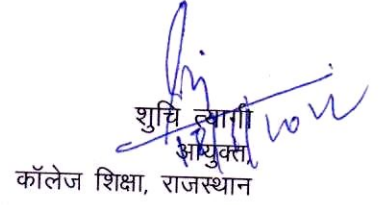 शुचि त्यागी
आयुक्त,
कॉलेज शिक्षा, राजस्थान